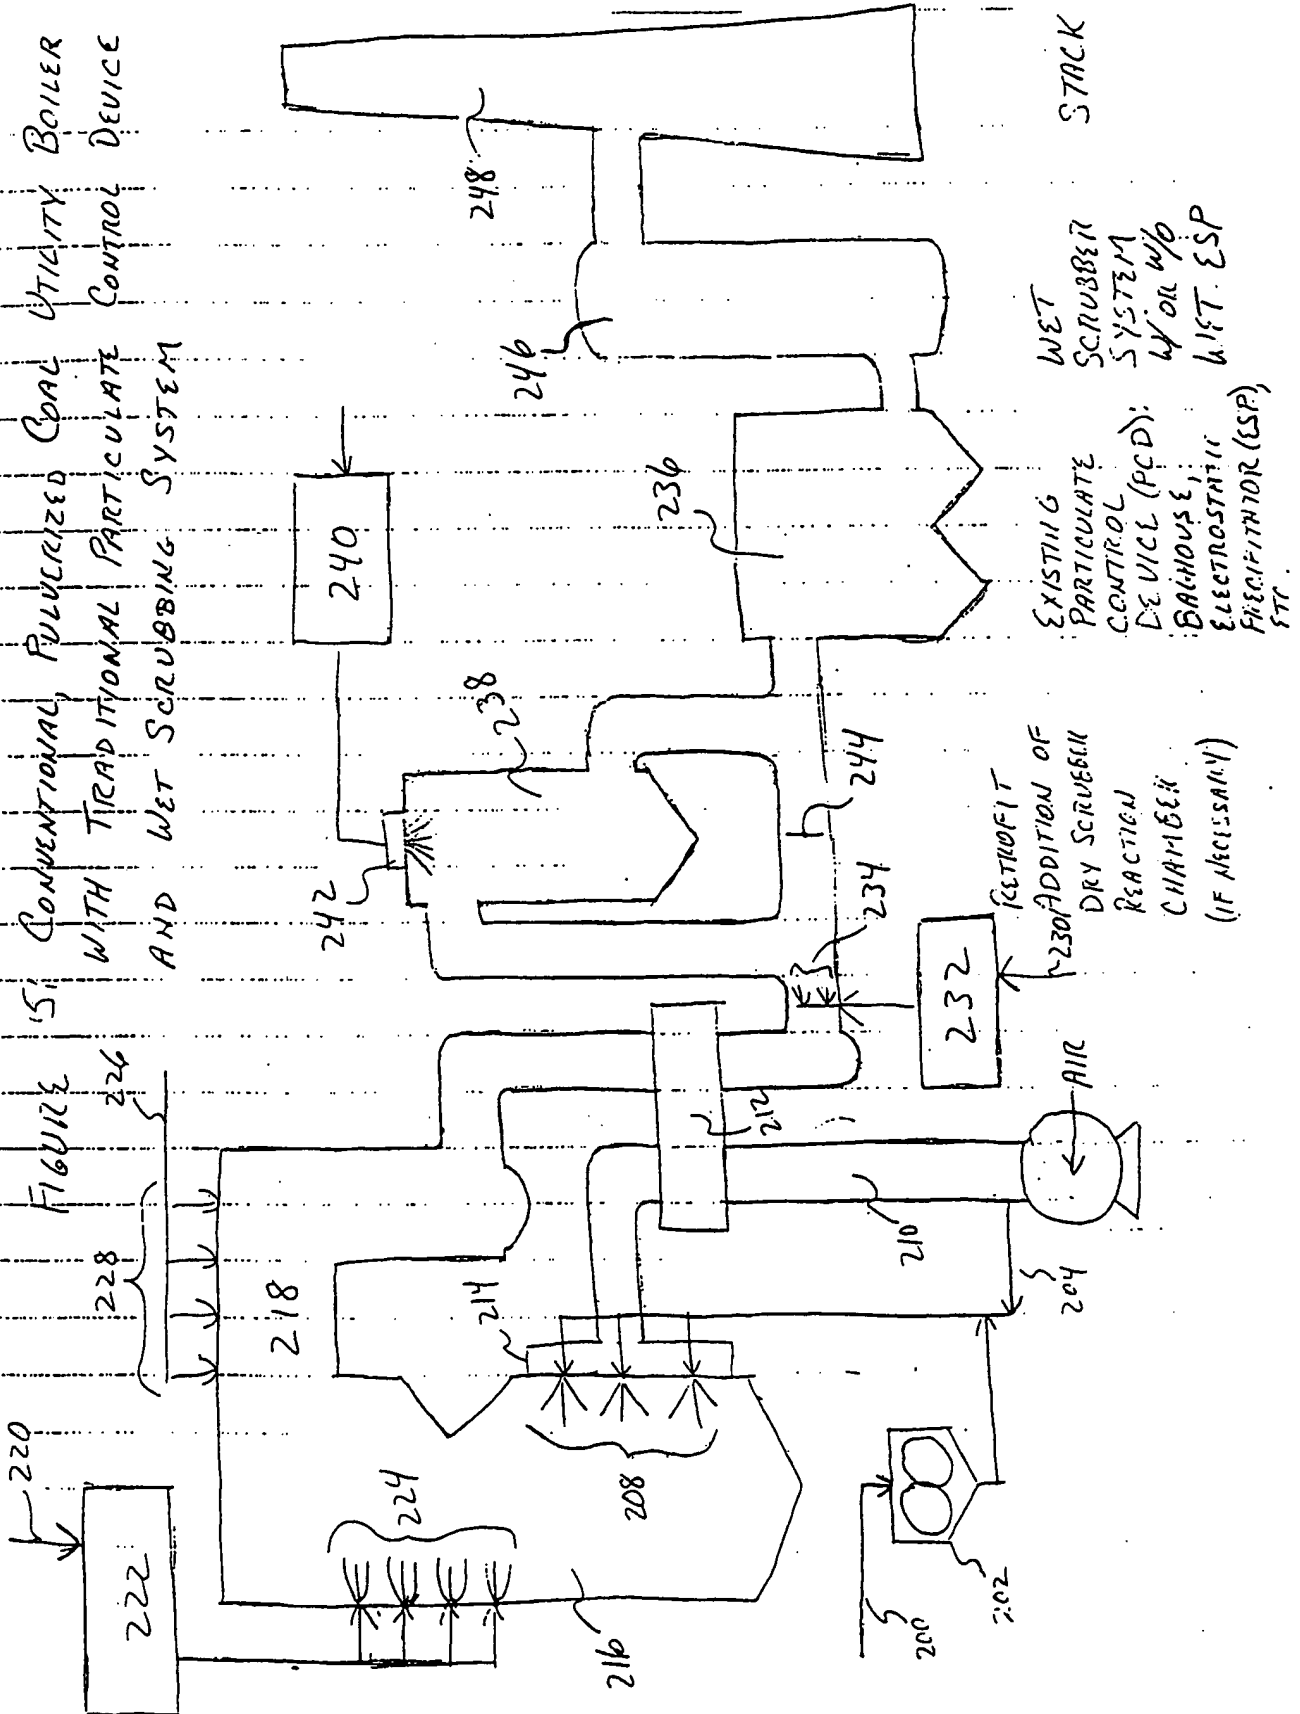 FIGURE 5: CONVENTIONAL, PULVERIZED COAL UTILITY BOILER
WITH TRADITIONAL PARTICULATE CONTROL DEVICE
AND WET SCRUBBING SYSTEM
220
222
224
228
226
218
214
208
216
200
202
204
210
212
AIR
232
230
234
242
238
244
240
236
246
248
RETROFIT
ADDITION OF
DRY SCRUBBER
REACTION
CHAMBER
(IF NECESSARY)
EXISTING
PARTICULATE
CONTROL
DEVICE (PCD):
BAGHOUSE,
ELECTROSTATIC
PRECIPITATOR (ESP),
ETC.
WET
SCRUBBER
SYSTEM
W/ OR W/O
WET ESP
STACK